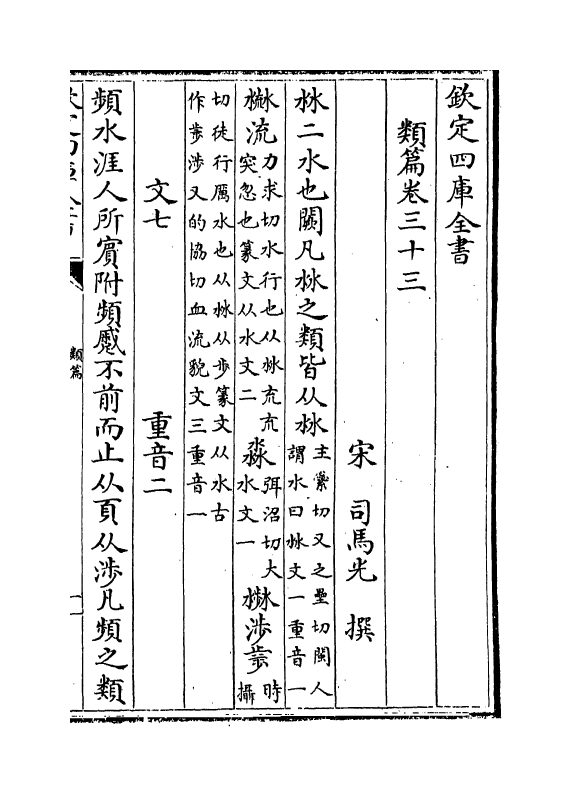 欽定四庫全書
類篇卷三十三
宋 司馬光 撰
沝二水也闕凡沝之類皆从沝主縈切又之壘切閩人謂水曰沝文一重音一
𣹳流力求切水行也从沝㐬㐬突忽也篆文从水文二 淼弭沼切大水文一 𣻣涉𣥿時攝
切徒行厲水也从沝从步篆文从水古作𣥿涉又的協切血流貌文三重音一
文七 重音二
頻水涯人所賓附頻蹙不前而止从頁从涉凡頻之類
類篇